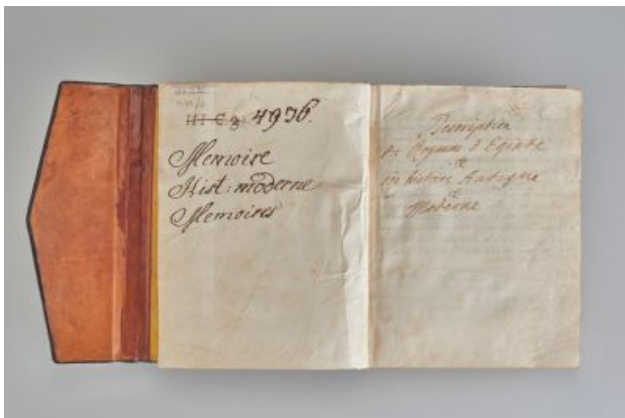 III C 3. 4936.
Memoire
Hist: moderne
Memoires
Description
du Royaume d'Egipte
en histoire Antique
et
Moderne